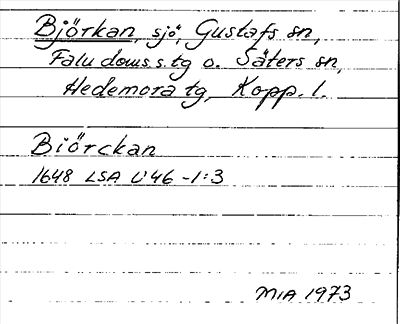 Björkan, sjö, Gustafs sn,
Falu doms.s.tg o. Säters sn,
Hedemora tg, Kopp. l.
Biörckan
1648 LSA U46-1:3
MIA 1973